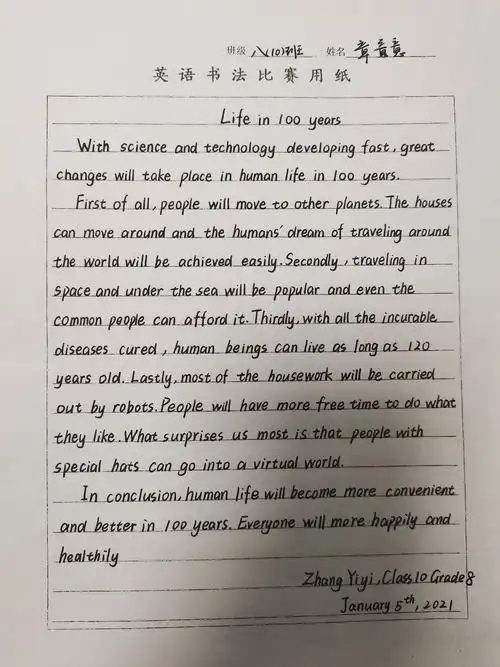 班级 八(10)班 姓名 章意意
英语书法比赛用纸
Life in 100 years
With science and technology developing fast, great
changes will take place in human life in 100 years.
First of all, people will move to other planets. The houses
can move around and the humans' dream of traveling around
the world will be achieved easily. Secondly, traveling in
space and under the sea will be popular and even the
common people can afford it. Thirdly, with all the incurable
diseases cured, human beings can live as long as 120
years old. Lastly, most of the housework will be carried
out by robots. People will have more free time to do what
they like. What surprises us most is that people with
special hats can go into a virtual world.
In conclusion, human life will become more convenient
and better in 100 years. Everyone will more happily and
healthily
Zhang Yiyi, Class 10 Grade 8
January 5th, 2021